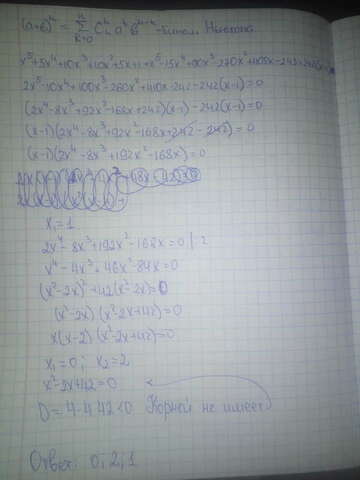 (a+b)ⁿ = Σ Cₙᵏ aᵏ bⁿ⁻ᵏ - бином Ньютона
n
k=0
x⁵+5x⁴+10x³+10x²+5x+1+x⁵-15x⁴+90x³-270x²+405x-243
2x⁵-10x⁴+100x³-260x²+410x-242-242(x-1)=0
(2x⁴-8x³+92x²-168x+242)(x-1)-242(x-1)=0
(x-1)(2x⁴-8x³+92x²-168x+242-242)=0
(x-1)(2x⁴-8x³+192x²-168x)=0
x₁=1
2x⁴-8x³+192x²-168x=0 |:2
x⁴-4x³+46x²-84x=0
(x²-2x)²+42(x²-2x)=0
(x²-2x)(x²-2x+42)=0
x(x-2)(x²-2x+42)=0
x₁=0; x₂=2
x²-2x+42=0
D=4-4·42<0 Корней не имеет
Ответ: 0, 2, 1